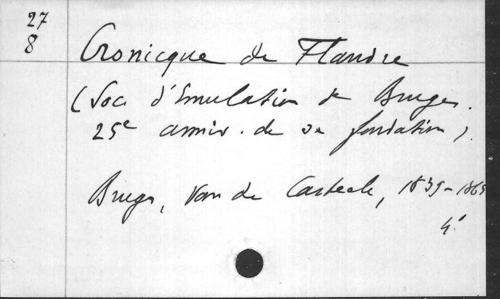 27
8
Cronicque de Flandre
(Soc. d'Emulation de Bruges.
25e anniv. de sa fondation).
Bruges, Van de Casteele, 1839-1865
4°